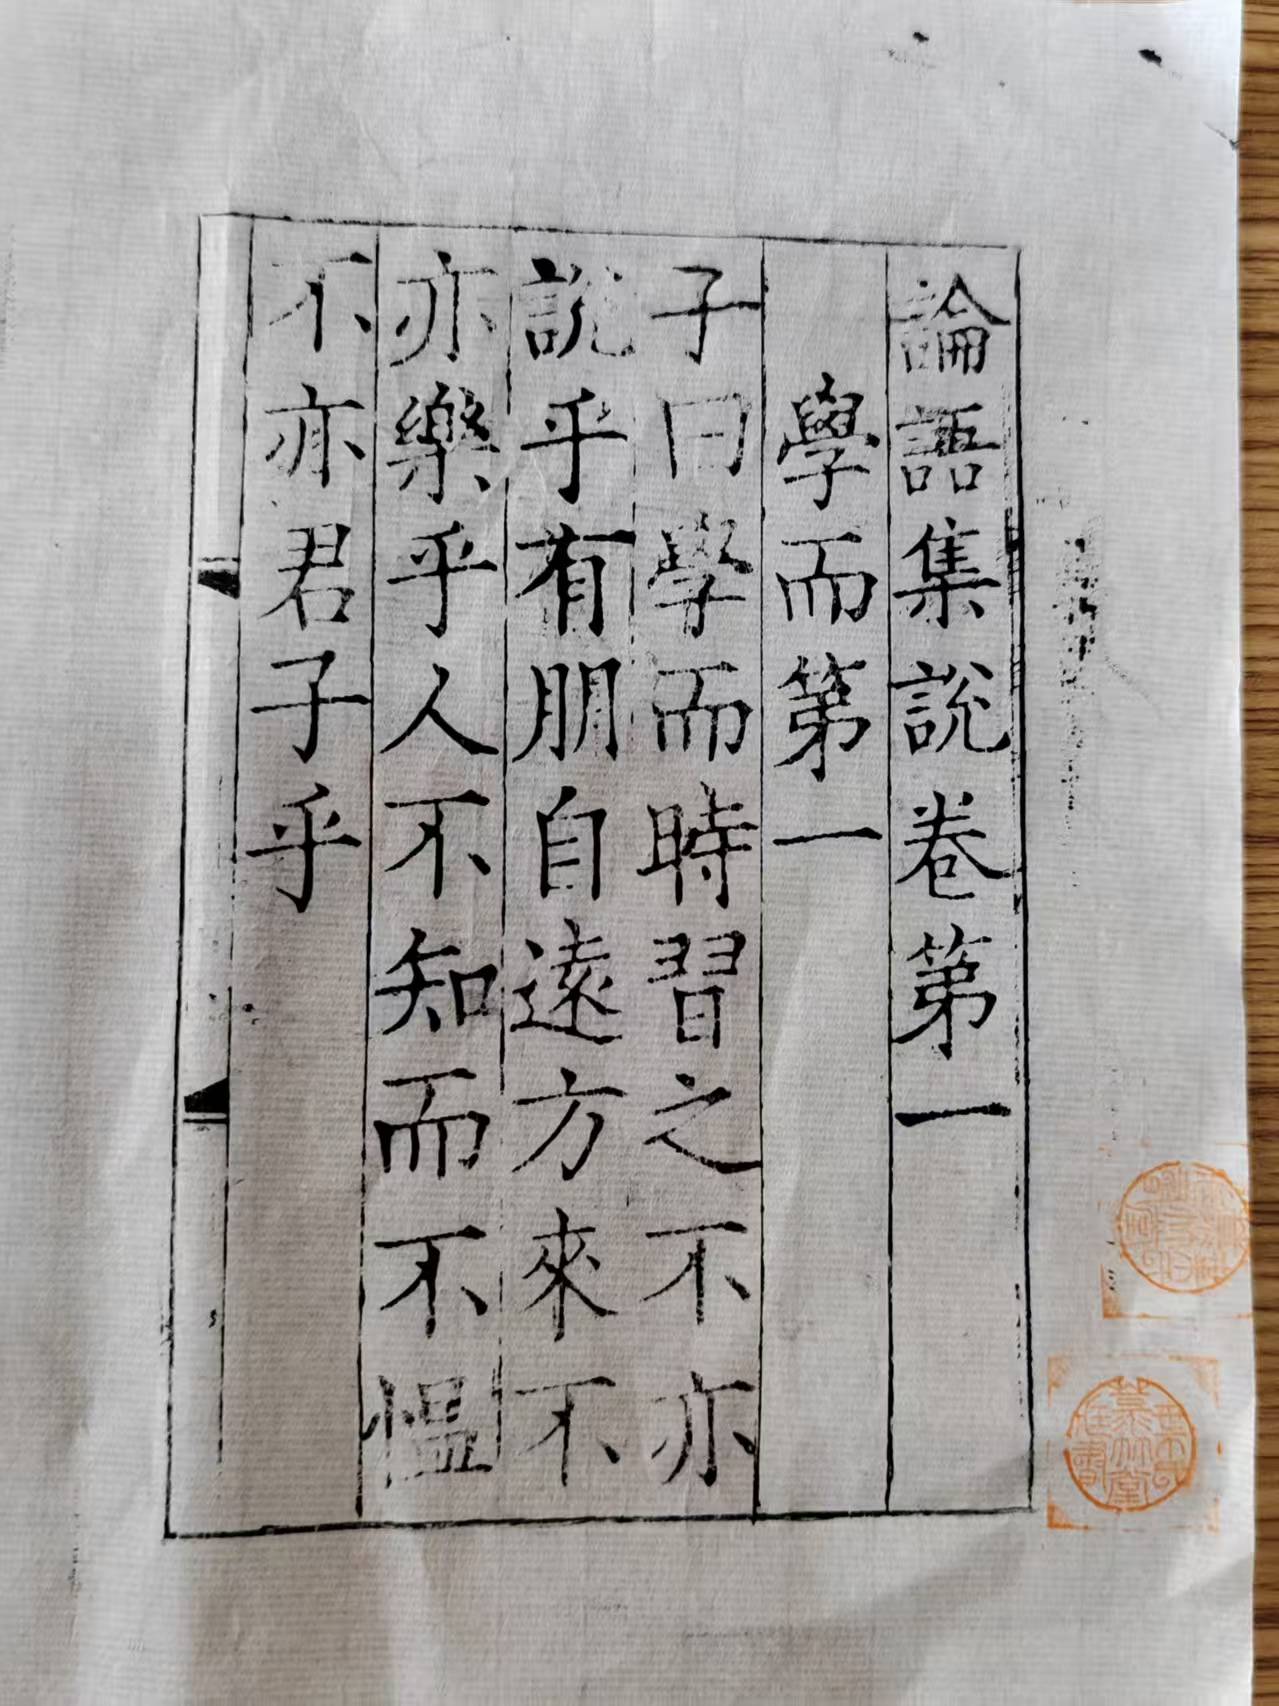 論語集説卷第一
學而第一
子曰學而時習之不亦
説乎有朋自遠方來不
亦樂乎人不知而不慍
不亦君子乎